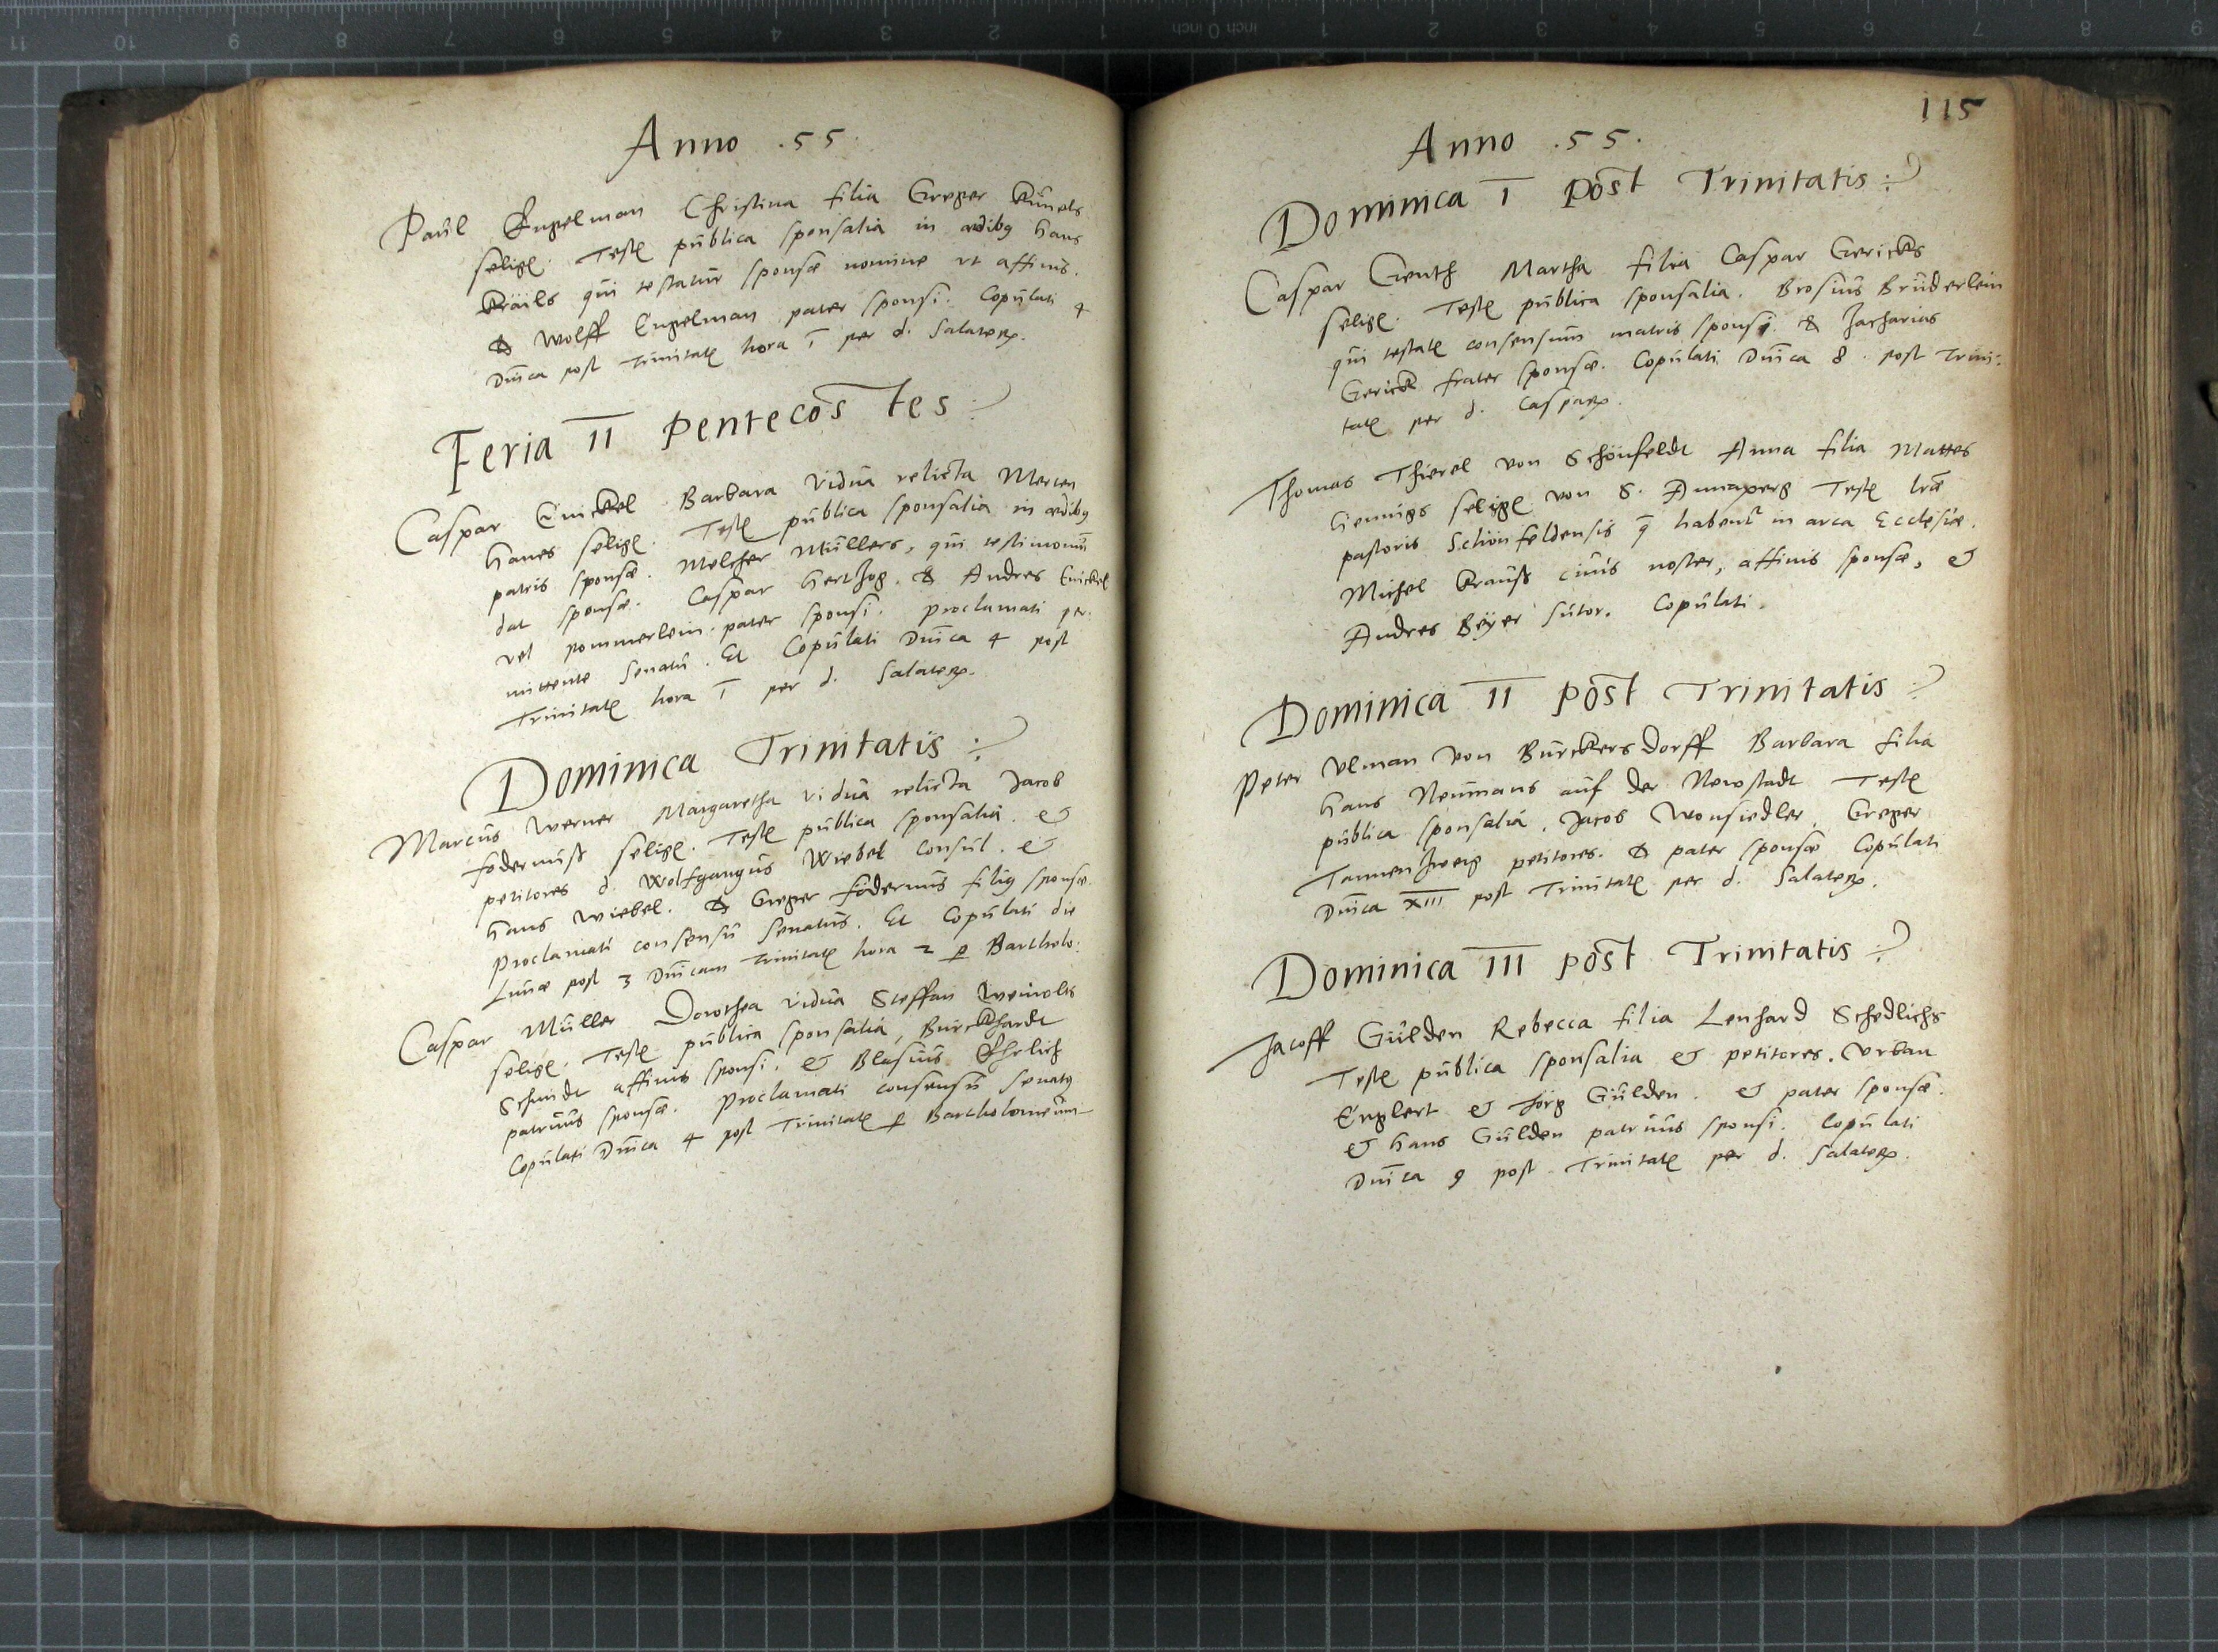 Anno .55.
Paul Engelman Christina filia Greger Künels
selige. Teste publica sponsalia in ædibus Hans
Kräils qui testatur sponsæ nomine ut affinis.
& Wolff Engelman pater sponsi. Copulati 4
Dnica post Trinitate hora 1 per d. Salatorem.
Feria II Pentecostes
Caspar Enickel Barbara vidua relicta Merten
Hanes selige. Teste publica sponsalia in ædibus
patris sponsæ. Melcher Müllers, qui testimoniu
dat sponsæ. Caspar Hertzog. & Andres Enickel
vel pommerlein. pater sponsi. Proclamati per
mittente Senatu. Et Copulati Dnica 4 post
Trinitate hora 1 per d. Salatorem.
Dominica Trinitatis
Marcus Werner Margaretha vidua relicta Jacob
födermüß selige. Teste publica sponsalia. &
petitores d. Wolfgangus Wiebel consul. &
Hans Wiebel. & Greger födermüs filius sponsæ.
Proclamati consensu Senatus. Et Copulati die
Lunæ post 3 Dnicam Trinitate hora 2 p Bartholo:
Caspar Müller Dorothea vidua Steffan
selige. Teste publica sponsalia, Burckhardt
Schmidt affinis sponsi. & Blasius Ehrlich
patruus sponsæ. Proclamati consensu Senatus
Copulati Dnica 4 post Trinitate p Bartholomeum
115
Anno .55.
Dominica I post Trinitatis
Caspar Genth Martha filia Caspar Gericks
selige. Teste publica sponsalia. Brosius Brüderlein
qui testate consensum matris sponsi. & Zacharias
Gerick frater sponsæ. Copulati Dnica 8. post Trini:
tate per d. Casparem.
Thomas Thierel von Schönfeldt Anna filia Mattes
Hennigs selige von S. Annaperg Teste lræ
pastoris Schönfeldensis q habentur in arca Ecclesiæ.
Michel Krauß civis noster, affinis sponsæ, &
Andres Beÿer sutor. Copulati.
Dominica II post Trinitatis
Peter Ulman von Bürckersdorff Barbara filia
Hans Neümans auf der Newstadt Teste
publica sponsalia. Jacob Wonsiedler, Greger
Tannenzweig petitores. & pater sponsæ Copulati
Dnica XIII post Trinitate per d. Salatorem.
Dominica III post Trinitatis
Jacoff Gülden Rebecca filia Lenhard Schedlichs
Teste publica sponsalia & petitores. Urban
Englert & Jörg Gülden. & pater sponsæ.
& Hans Gülden patruus sponsi. Copulati
Dnica 9 post Trinitate per d. Salatorem.